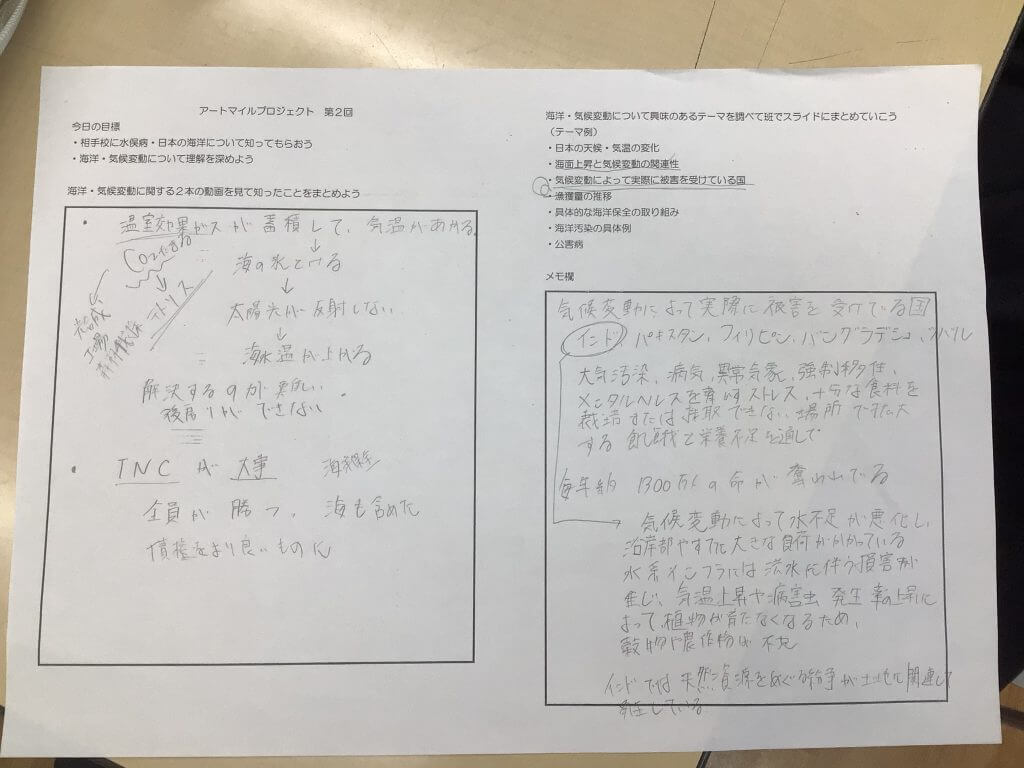 アートマイルプロジェクト 第2回
今日の目標
・相手校に水俣病・日本の海洋について知ってもらおう
・海洋・気候変動について理解を深めよう
海洋・気候変動に関する2本の動画を見て知ったことをまとめよう
・ 温室効果ガスが蓄積して、気温があがる
CO2
↓
海の氷とける
↓
太陽光が反射しない
↓
海水温が上がる
解決するのが難しい
後戻りができない
・ TNC が 大事
全員が勝つ、海も含めた
債権をより良いものに
海洋・気候変動について興味のあるテーマを調べて班でスライドにまとめていこう
(テーマ例)
・日本の天候・気温の変化
・海面上昇と気候変動の関連性
・気候変動によって実際に被害を受けている国
・漁獲量の推移
・具体的な海洋保全の取り組み
・海洋汚染の具体例
・公害病
メモ欄
気候変動によって実際に被害を受けている国
インド パキスタン、フィリピン、バングラデシュ、ネパール
大気汚染、病気、異常気象、強制移住、
メンタルヘルスを脅かすストレス、十分な食料を
栽培または採取できない場所で
する飢餓と栄養不足を通して
毎年約1300万人の命が奪われてる
→ 気候変動によって水不足が悪化し、
沿岸部やすでに大きな負荷がかかっている
水系インフラには洪水に伴う損害が
生じ、気温上昇や病害虫発生率の上昇に
よって、植物が育たなくなるため、
穀物や農作物が不足
インドでは天然資源をめぐる紛争が土地に関連して
発生している